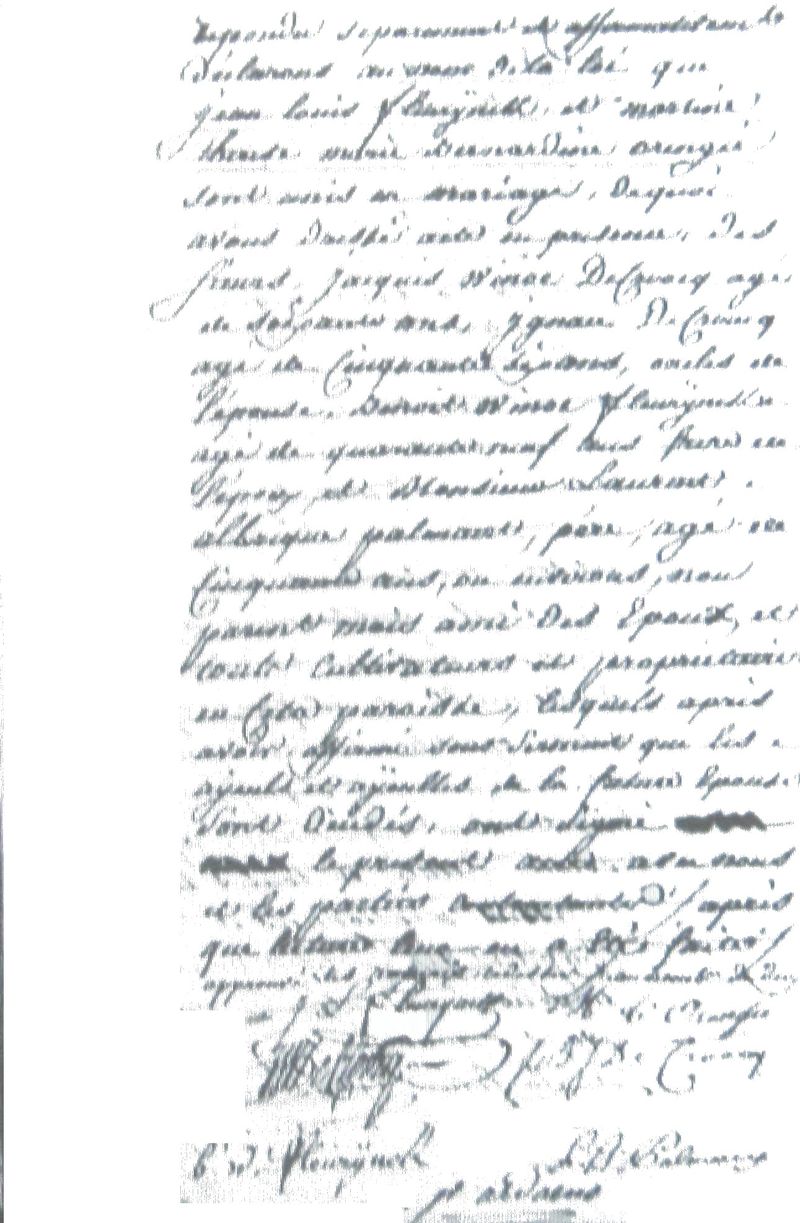 répondu séparément et affirmativement
déclarons au nom de la loi que
jean louis fleurÿnck, et
therese marie Bernardine
sont unis en mariage, de quoi
avons dressé acte en présence, des
sieurs, jacques Winoc DeCrocq agé
de soixante ans, ignace DeCrocq
agé de Cinquante ans, oncles de
l'épouse, Benoit Winoc fleurÿnck
agé de quarante neuf ans frere de
l'époux, et Monsieur Laurent
albrique palmaert, père, agé de
Cinquante ans, ou environs, non
parent mais ami des Epoux, et
touts Cultivateurs et propriétaire
en Cette paroisse, lesquels après
avoir affirmé sous serment que les
ayeuls et ayeulles de la future Epouse
sont décédés, ont signé
le présent acte avec nous
et les parties contractantes / après
que lecture leur en a été faite /
approuvé les
J L fleurynck
B. W. fleurÿnck